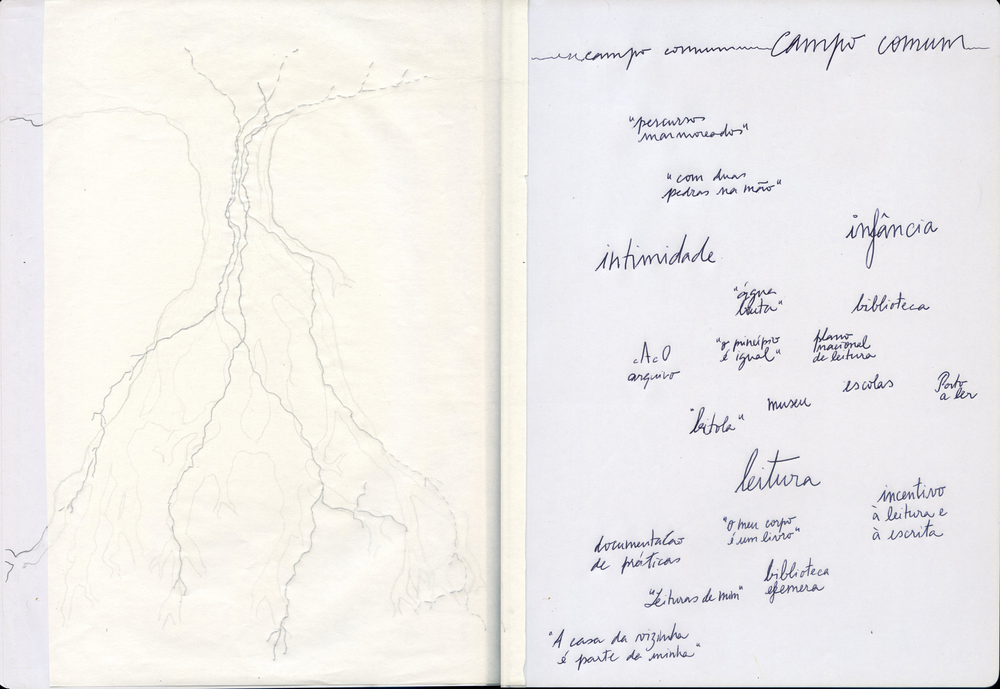 campo comum campo comum
"percursos
marmoreados"
"com duas
pedras na mão"
infância
intimidade
"água
bruta"
biblioteca
"o princípio
é igual"
plano
nacional
de leitura
AcO
arquivo
escolas
Porto
a ler
museu
"bitola"
leitura
incentivo
à leitura e
à escrita
"o meu corpo
é um livro"
documentação
de práticas
biblioteca
efemera
"Leituras de mim"
"A casa da vizinha
é parte da minha"